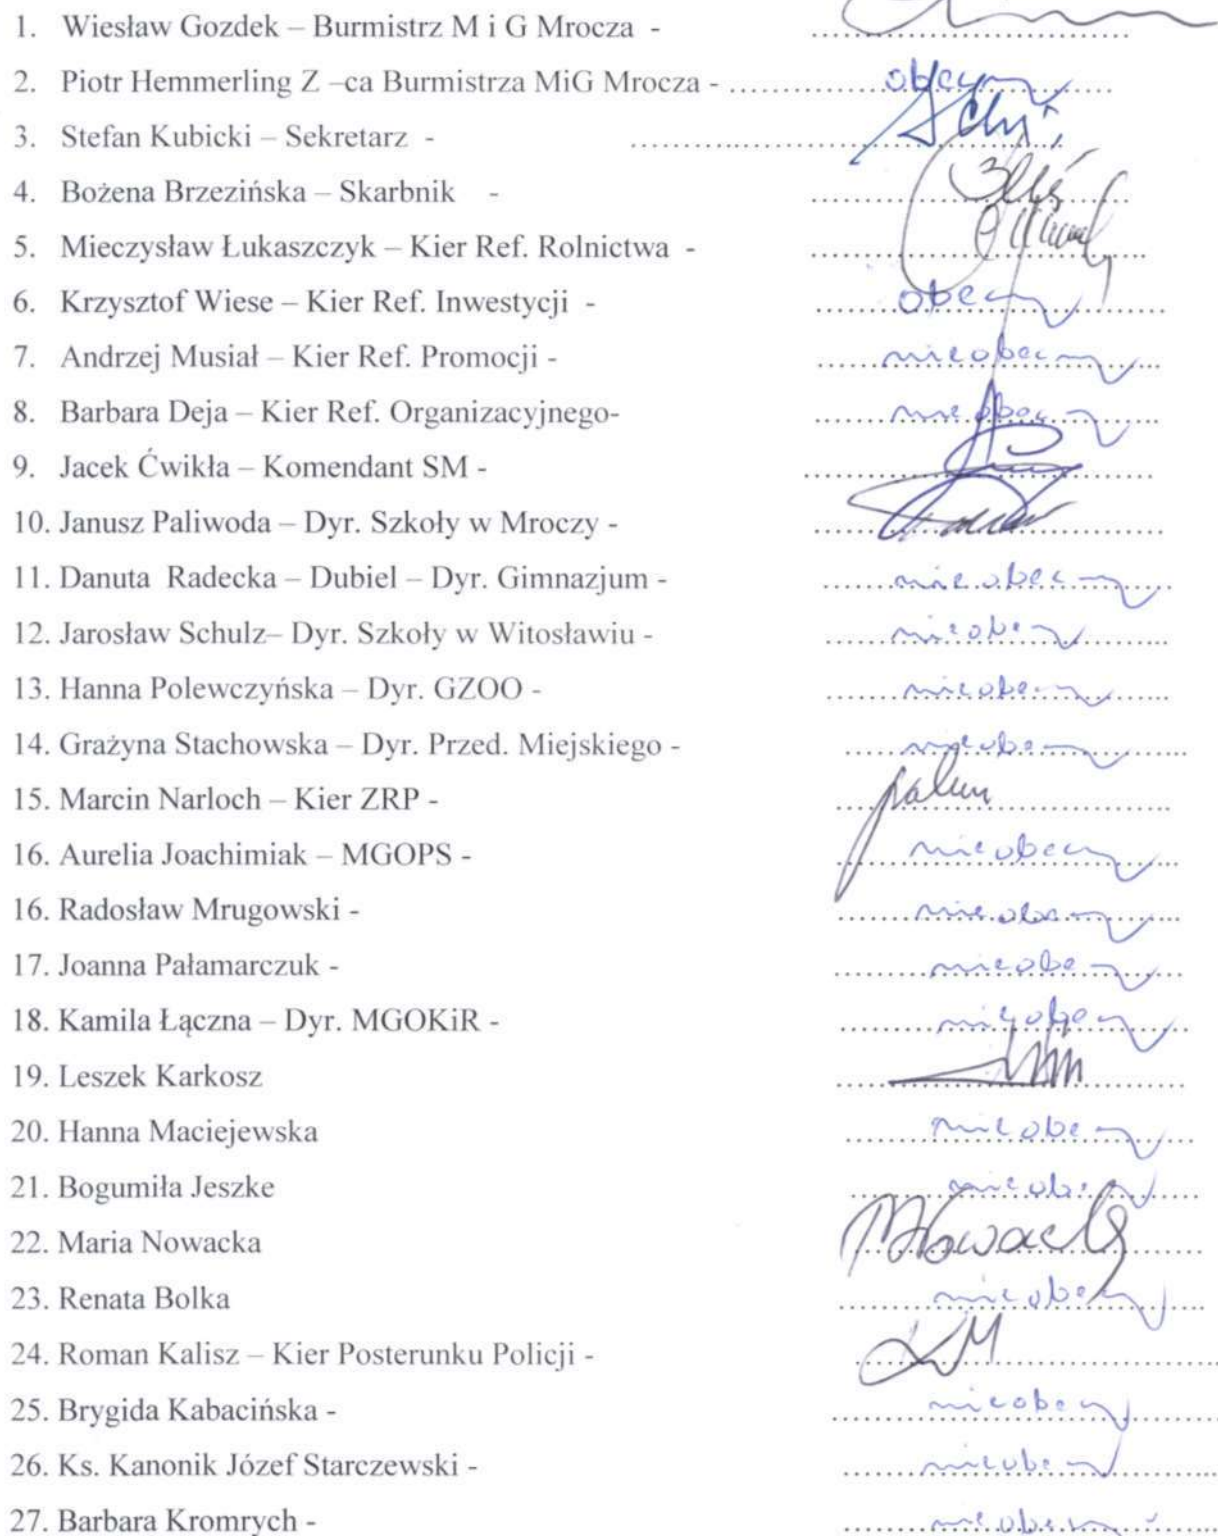 1. Wiesław Gozdek – Burmistrz M i G Mrocza - ....................................
2. Piotr Hemmerling Z –ca Burmistrza MiG Mrocza - ............obecny............
3. Stefan Kubicki – Sekretarz - ....................................
4. Bożena Brzezińska – Skarbnik - ....................................
5. Mieczysław Łukaszczyk – Kier Ref. Rolnictwa - ....................................
6. Krzysztof Wiese – Kier Ref. Inwestycji - ............obecny............
7. Andrzej Musiał – Kier Ref. Promocji - ............nieobecny............
8. Barbara Deja – Kier Ref. Organizacyjnego- ............nieobecny............
9. Jacek Ćwikła – Komendant SM - ....................................
10. Janusz Paliwoda – Dyr. Szkoły w Mroczy - ....................................
11. Danuta Radecka – Dubiel – Dyr. Gimnazjum - ............nieobecny............
12. Jarosław Schulz– Dyr. Szkoły w Witosławiu - ............nieobecny............
13. Hanna Polewczyńska – Dyr. GZOO - ............nieobecny............
14. Grażyna Stachowska – Dyr. Przed. Miejskiego - ............nieobecny............
15. Marcin Narloch – Kier ZRP - ....................................
16. Aurelia Joachimiak – MGOPS - ............nieobecny............
16. Radosław Mrugowski - ............nieobecny............
17. Joanna Pałamarczuk - ............nieobecny............
18. Kamila Łączna – Dyr. MGOKiR - ............nieobecny............
19. Leszek Karkosz ....................................
20. Hanna Maciejewska ............nieobecny............
21. Bogumiła Jeszke ............nieobecny............
22. Maria Nowacka ............MNowacka............
23. Renata Bolka ............nieobecny............
24. Roman Kalisz – Kier Posterunku Policji - ....................................
25. Brygida Kabacińska - ............nieobecny............
26. Ks. Kanonik Józef Starczewski - ............nieobecny............
27. Barbara Kromrych - ............nieobecny............